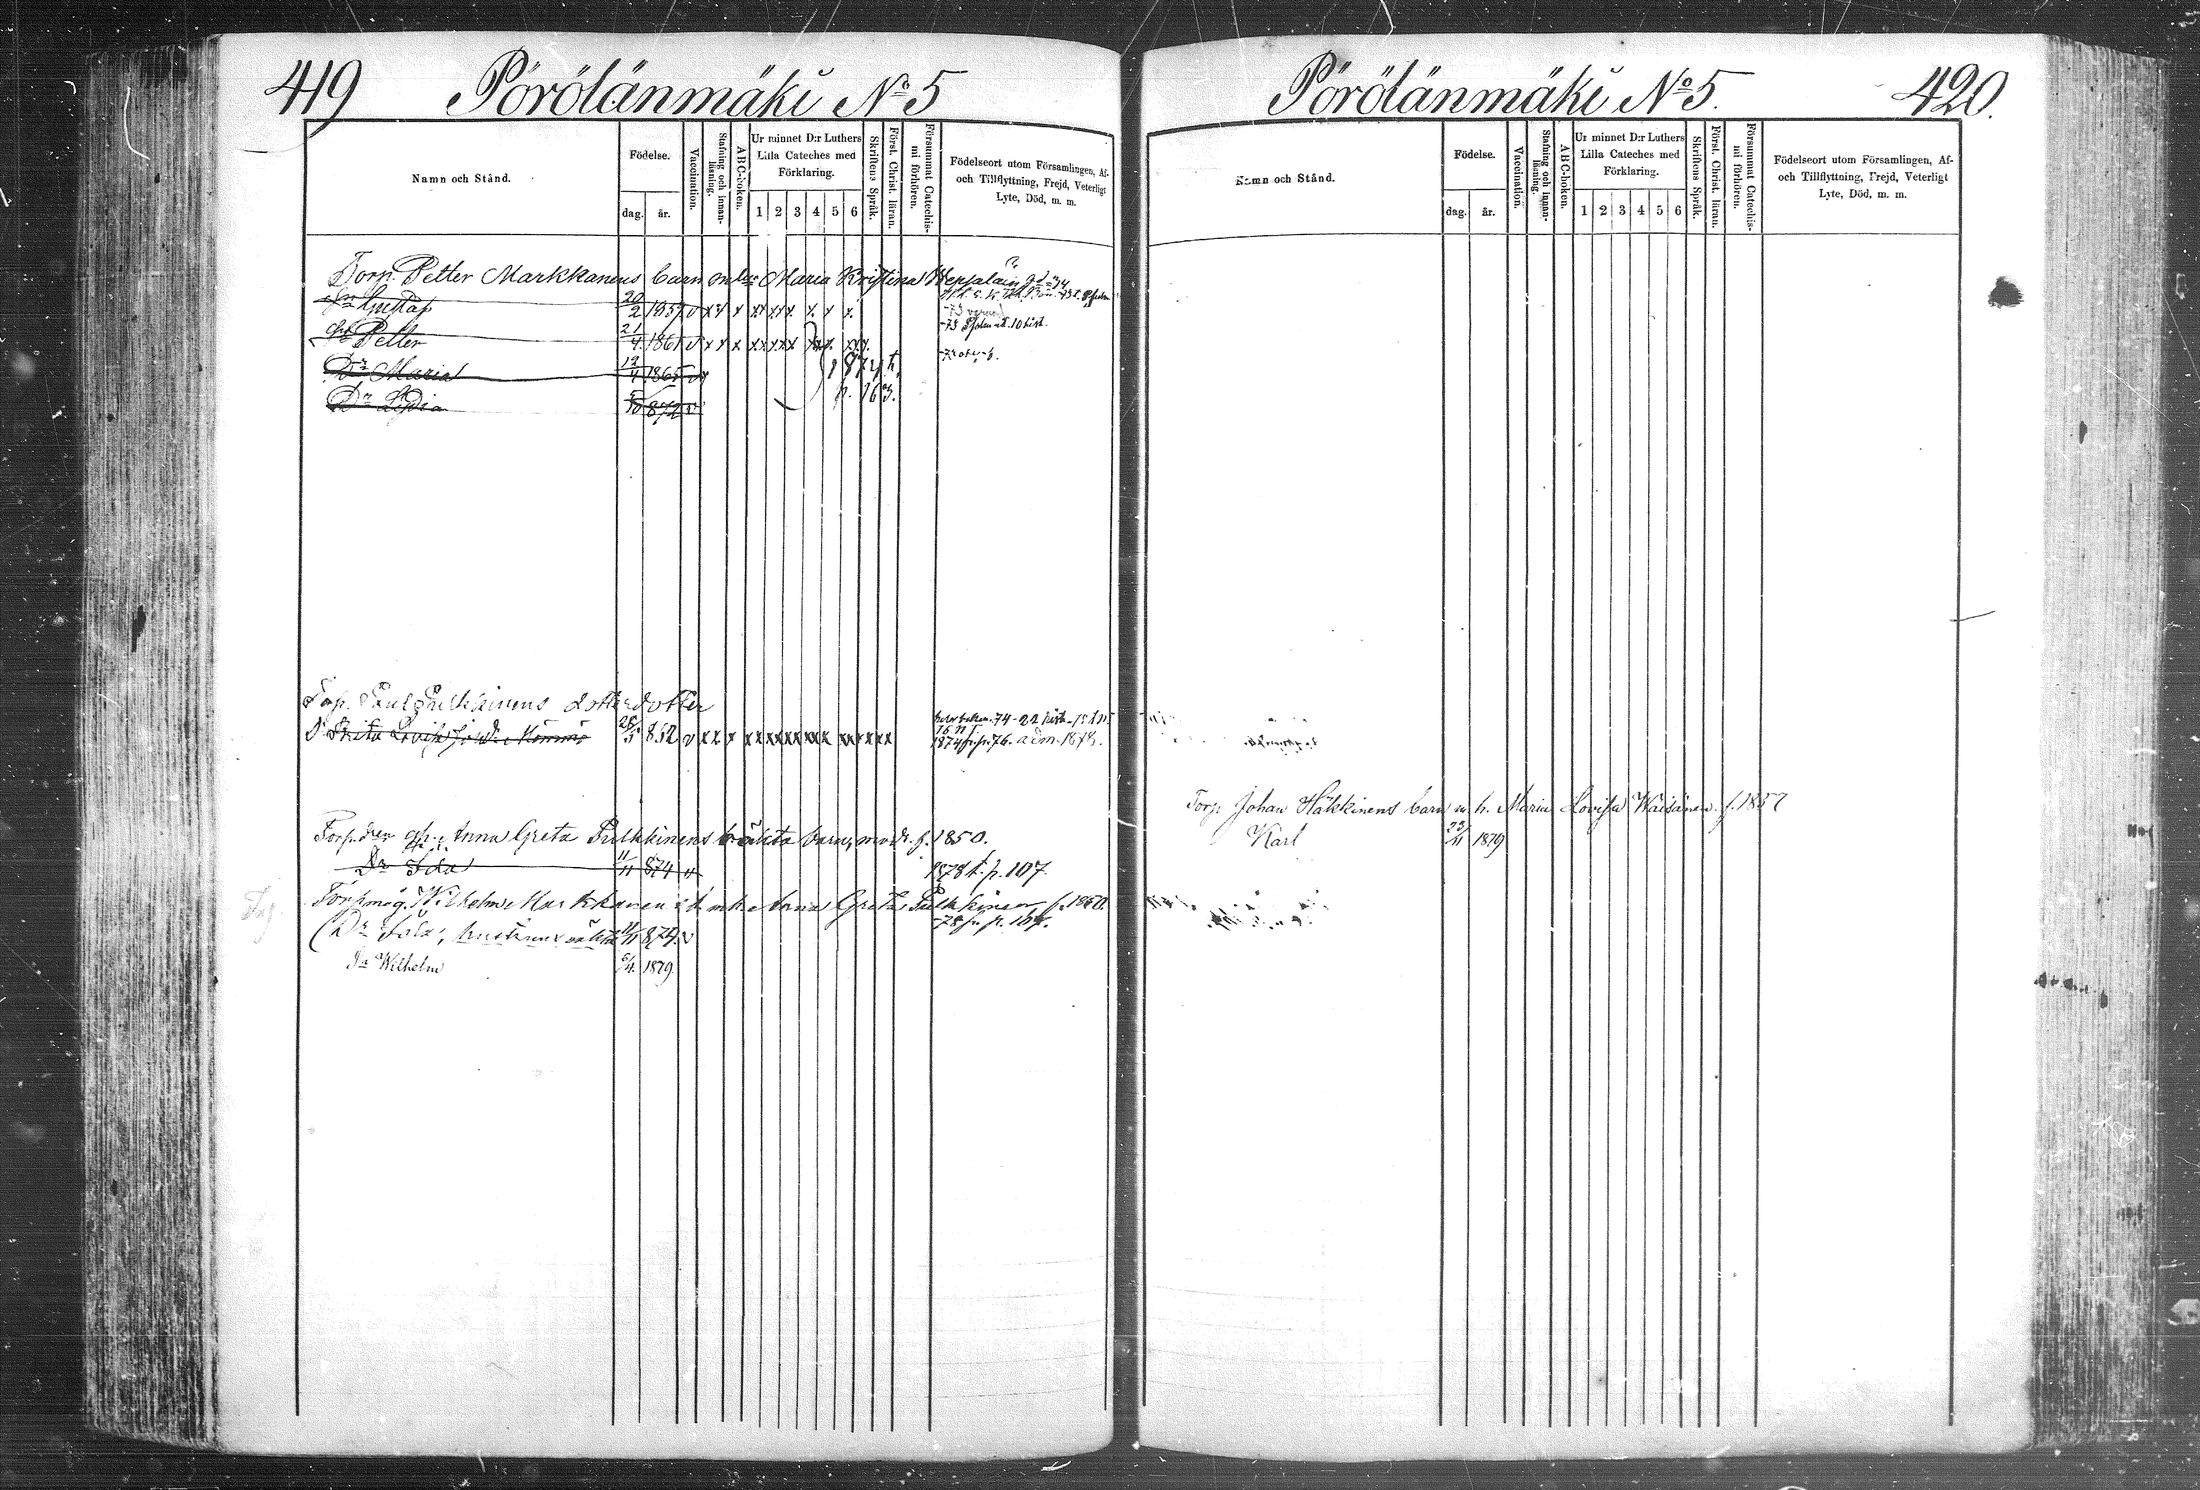 419 Pörölänmäki No 5
Namn och Stånd.
Födelse.
dag. år.
Vaccination.
Stafning och innan-
läsning.
ABC-boken.
Ur minnet D:r Luthers
Lilla Cateches med
Förklaring.
1 2 3 4 5 6
Skriftens Språk.
Först. Christ. läran.
Försummat Catechis-
mi förhören.
Födelseort utom Församlingen, Af-
och Tillflyttning, Frejd, Veterligt
Lyte, Död, m. m.
Torp. Petter Markkanens barn Maria Kristina
Gustaf 20/2 1857 v x x x x x x x x x x
Petter 21/4 1861 v x x x x x x x x
Dr Maria 12/4 1865 v 1874 t.
Dr Lydia 872 v p. 163.
Torp. Paul Pulkkinens dotterdotter
Brita Lovisa 28/5 852 v x x x x x x x x x x x x x x x
1874 fr. p. 76. adm. 1873.
Anna Greta Pulkkinens oäkta barn, f. 1850.
Dr Ida 11/11 874 v 1878 t. p. 107.
Wilhelm Markkanen Anna Greta Pulkkinen f. 1850.
Dr Ida, hustruns oäkta 11/11 874. v -78 fr. p. 107.
Dr Wilhelm 6/4. 1879.
Pörölänmäki No 5. 420.
Namn och Stånd.
Födelse.
dag. år.
Vaccination.
Stafning och innan-
läsning.
ABC-boken.
Ur minnet D:r Luthers
Lilla Cateches med
Förklaring.
1 2 3 4 5 6
Skriftens Språk.
Först. Christ. läran.
Försummat Catechis-
mi förhören.
Födelseort utom Församlingen, Af-
och Tillflyttning, Frejd, Veterligt
Lyte, Död, m. m.
Torp. Johan Häkkinens barn m. h. Maria Lovisa Wäisänen f. 1857
Karl 23/11 1879